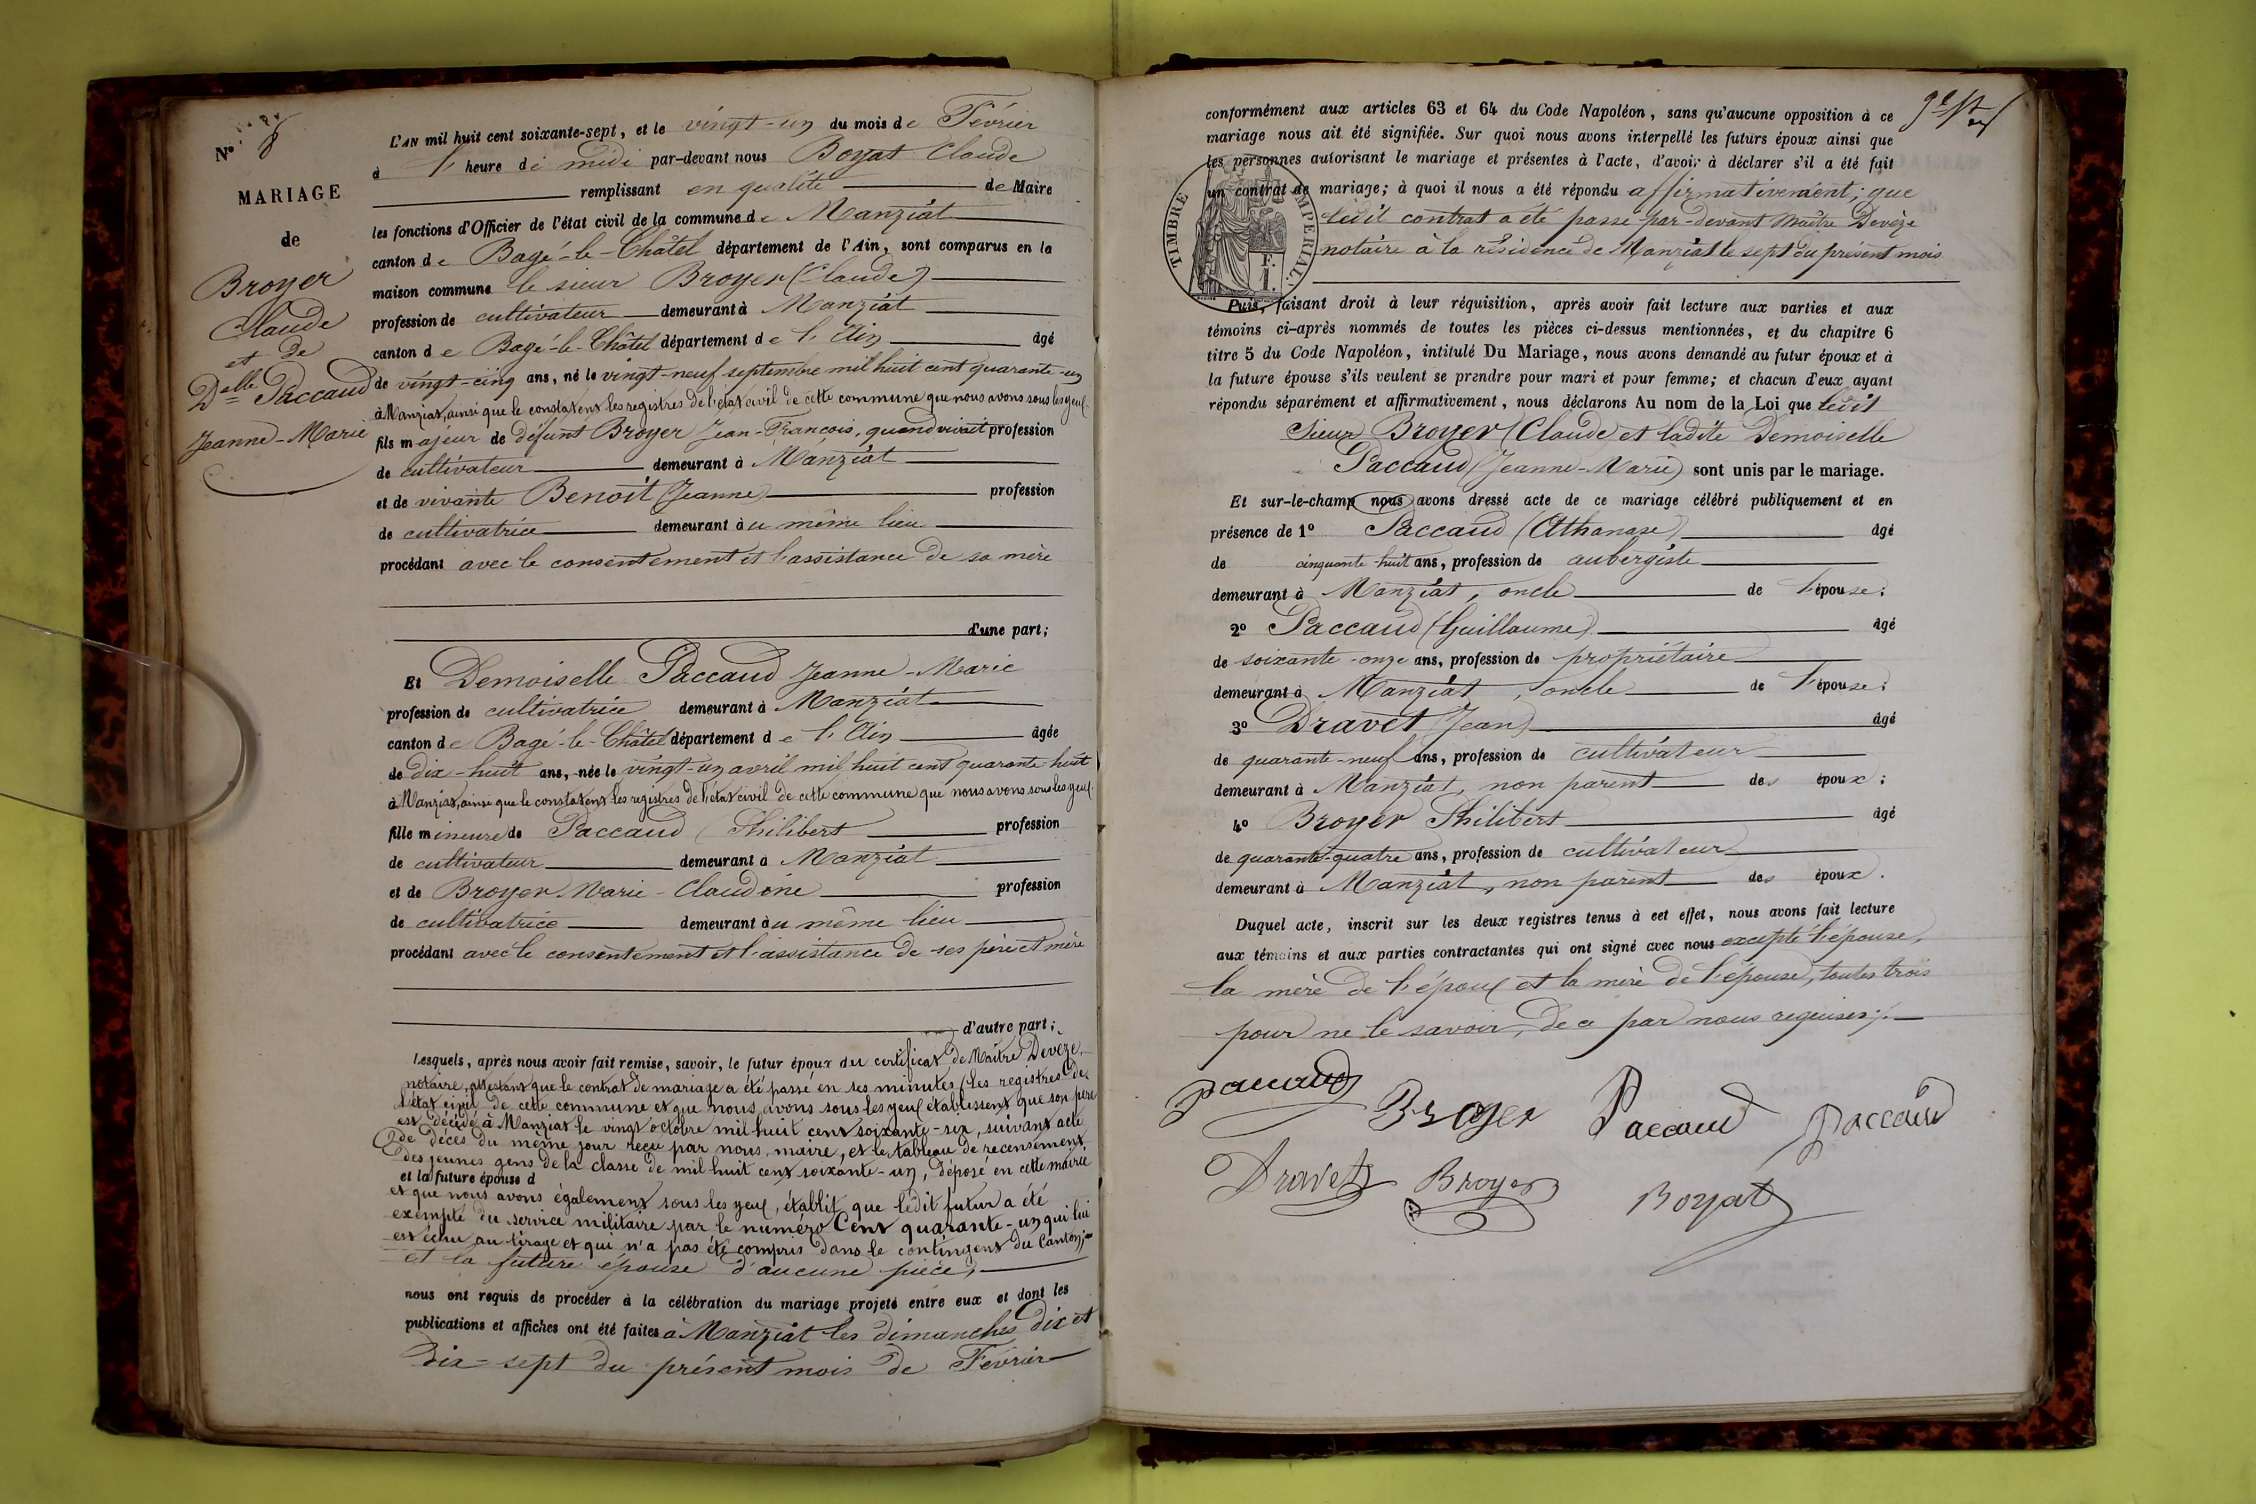 Nº 8
MARIAGE
de
Broyer
Claude
et de
Delle Paccaud
Jeanne-Marie
L'AN mil huit cent soixante-sept, et le vingt-un du mois de Février
à 1 heure de midi par-devant nous Boyat Claude
remplissant en qualité de Maire
les fonctions d'Officier de l'état civil de la commune de Manziat
canton de Bagé-le-Châtel département de l'Ain, sont comparus en la
maison commune le sieur Broyer (Claude)
profession de cultivateur demeurant à Manziat
canton de Bagé-le-Châtel département de l'Ain âgé
de vingt-cinq ans, né le vingt-neuf septembre mil huit cent quarante-un
à Manziat, ainsi que le constatent les registres de l'état civil de cette commune que nous avons sous les yeux
fils majeur de défunt Broyer Jean-François, quand vivait profession
de cultivateur demeurant à Manziat
et de vivante Benoît (Jeanne) profession
de cultivatrice demeurant au même lieu
procédant avec le consentement et l'assistance de sa mère
d'une part;
Et Demoiselle Paccaud Jeanne-Marie
profession de cultivatrice demeurant à Manziat
canton de Bagé-le-Châtel département de l'Ain âgée
de dix-huit ans, née le vingt-un avril mil huit cent quarante-huit
à Manziat, ainsi que le constatent les registres de l'état civil de cette commune que nous avons sous les yeux
fille mineure de Paccaud Philibert profession
de cultivateur demeurant à Manziat
et de Broyer Marie-Claudine profession
de cultivatrice demeurant au même lieu
procédant avec le consentement et l'assistance de ses père et mère
d'autre part;
Lesquels, après nous avoir fait remise, savoir, le futur époux du certificat de Maître Devèze,
notaire, attestant que le contrat de mariage a été passé en ses minutes (les registres de
l'état civil de cette commune et que nous avons sous les yeux établissent que son père
est décédé à Manziat le vingt octobre mil huit cent soixante-six, suivant acte
de décès du même jour reçu par nous, maire, et le tableau de recensement
des jeunes gens de la classe de mil huit cent soixante-un, déposé en cette mairie
et la future épouse d
et que nous avons également sous les yeux, établit que ledit futur a été
exempté du service militaire par le numéro Cent quarante-un qui lui
est échu au tirage et qui n'a pas été compris dans le contingent du Canton;
et la future épouse d'aucune pièce,
nous ont requis de procéder à la célébration du mariage projeté entre eux et dont les
publications et affiches ont été faites à Manziat les dimanches dix et
dix-sept du présent mois de Février
conformément aux articles 63 et 64 du Code Napoléon, sans qu'aucune opposition à ce
mariage nous ait été signifiée. Sur quoi nous avons interpellé les futurs époux ainsi que
les personnes autorisant le mariage et présentes à l'acte, d'avoir à déclarer s'il a été fait
un contrat de mariage; à quoi il nous a été répondu affirmativement; que
ledit contrat a été passé par-devant Maître Devèze
notaire à la résidence de Manziat le sept du présent mois
TIMBRE IMPERIAL
F.
1.
Puis, faisant droit à leur réquisition, après avoir fait lecture aux parties et aux
témoins ci-après nommés de toutes les pièces ci-dessus mentionnées, et du chapitre 6
titre 5 du Code Napoléon, intitulé Du Mariage, nous avons demandé au futur époux et à
la future épouse s'ils veulent se prendre pour mari et pour femme; et chacun d'eux ayant
répondu séparément et affirmativement, nous déclarons Au nom de la Loi que ledit
Sieur Broyer (Claude et ladite Demoiselle
Paccaud (Jeanne-Marie) sont unis par le mariage.
Et sur-le-champ nous avons dressé acte de ce mariage célébré publiquement et en
présence de 1º Paccaud (Athanase) âgé
de cinquante-huit ans, profession de aubergiste
demeurant à Manziat, oncle de l'épouse;
2º Paccaud (Guillaume) âgé
de soixante-onze ans, profession de propriétaire
demeurant à Manziat, oncle de l'épouse;
3º Dravet (Jean) âgé
de quarante-neuf ans, profession de cultivateur
demeurant à Manziat, non parent des époux;
4º Broyer Philibert âgé
de quarante-quatre ans, profession de cultivateur
demeurant à Manziat, non parent des époux.
Duquel acte, inscrit sur les deux registres tenus à cet effet, nous avons fait lecture
aux témoins et aux parties contractantes qui ont signé avec nous excepté l'épouse,
la mère de l'époux et la mère de l'épouse, toutes trois
pour ne le savoir, de ce par nous requises;
Paccaud Broyer Paccaud Paccaud
Dravet Broyer Boyat